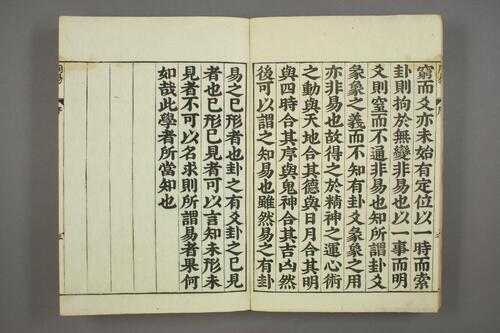 窮而爻亦未始有定位以一時而索
卦則拘於無變非易也以一事而明
爻則窒而不通非易也知所謂卦爻
彖象之義而不知有卦爻彖象之用
亦非易也故得之於精神之運心術
之動與天地合其德與日月合其明
與四時合其序與鬼神合其吉凶然
後可以謂之知易也雖然易之有卦
易之已形者也卦之有爻卦之已見
者也已形已見者可以言知未形未
見者不可以名求則所謂易者果何
如哉此學者所當知也